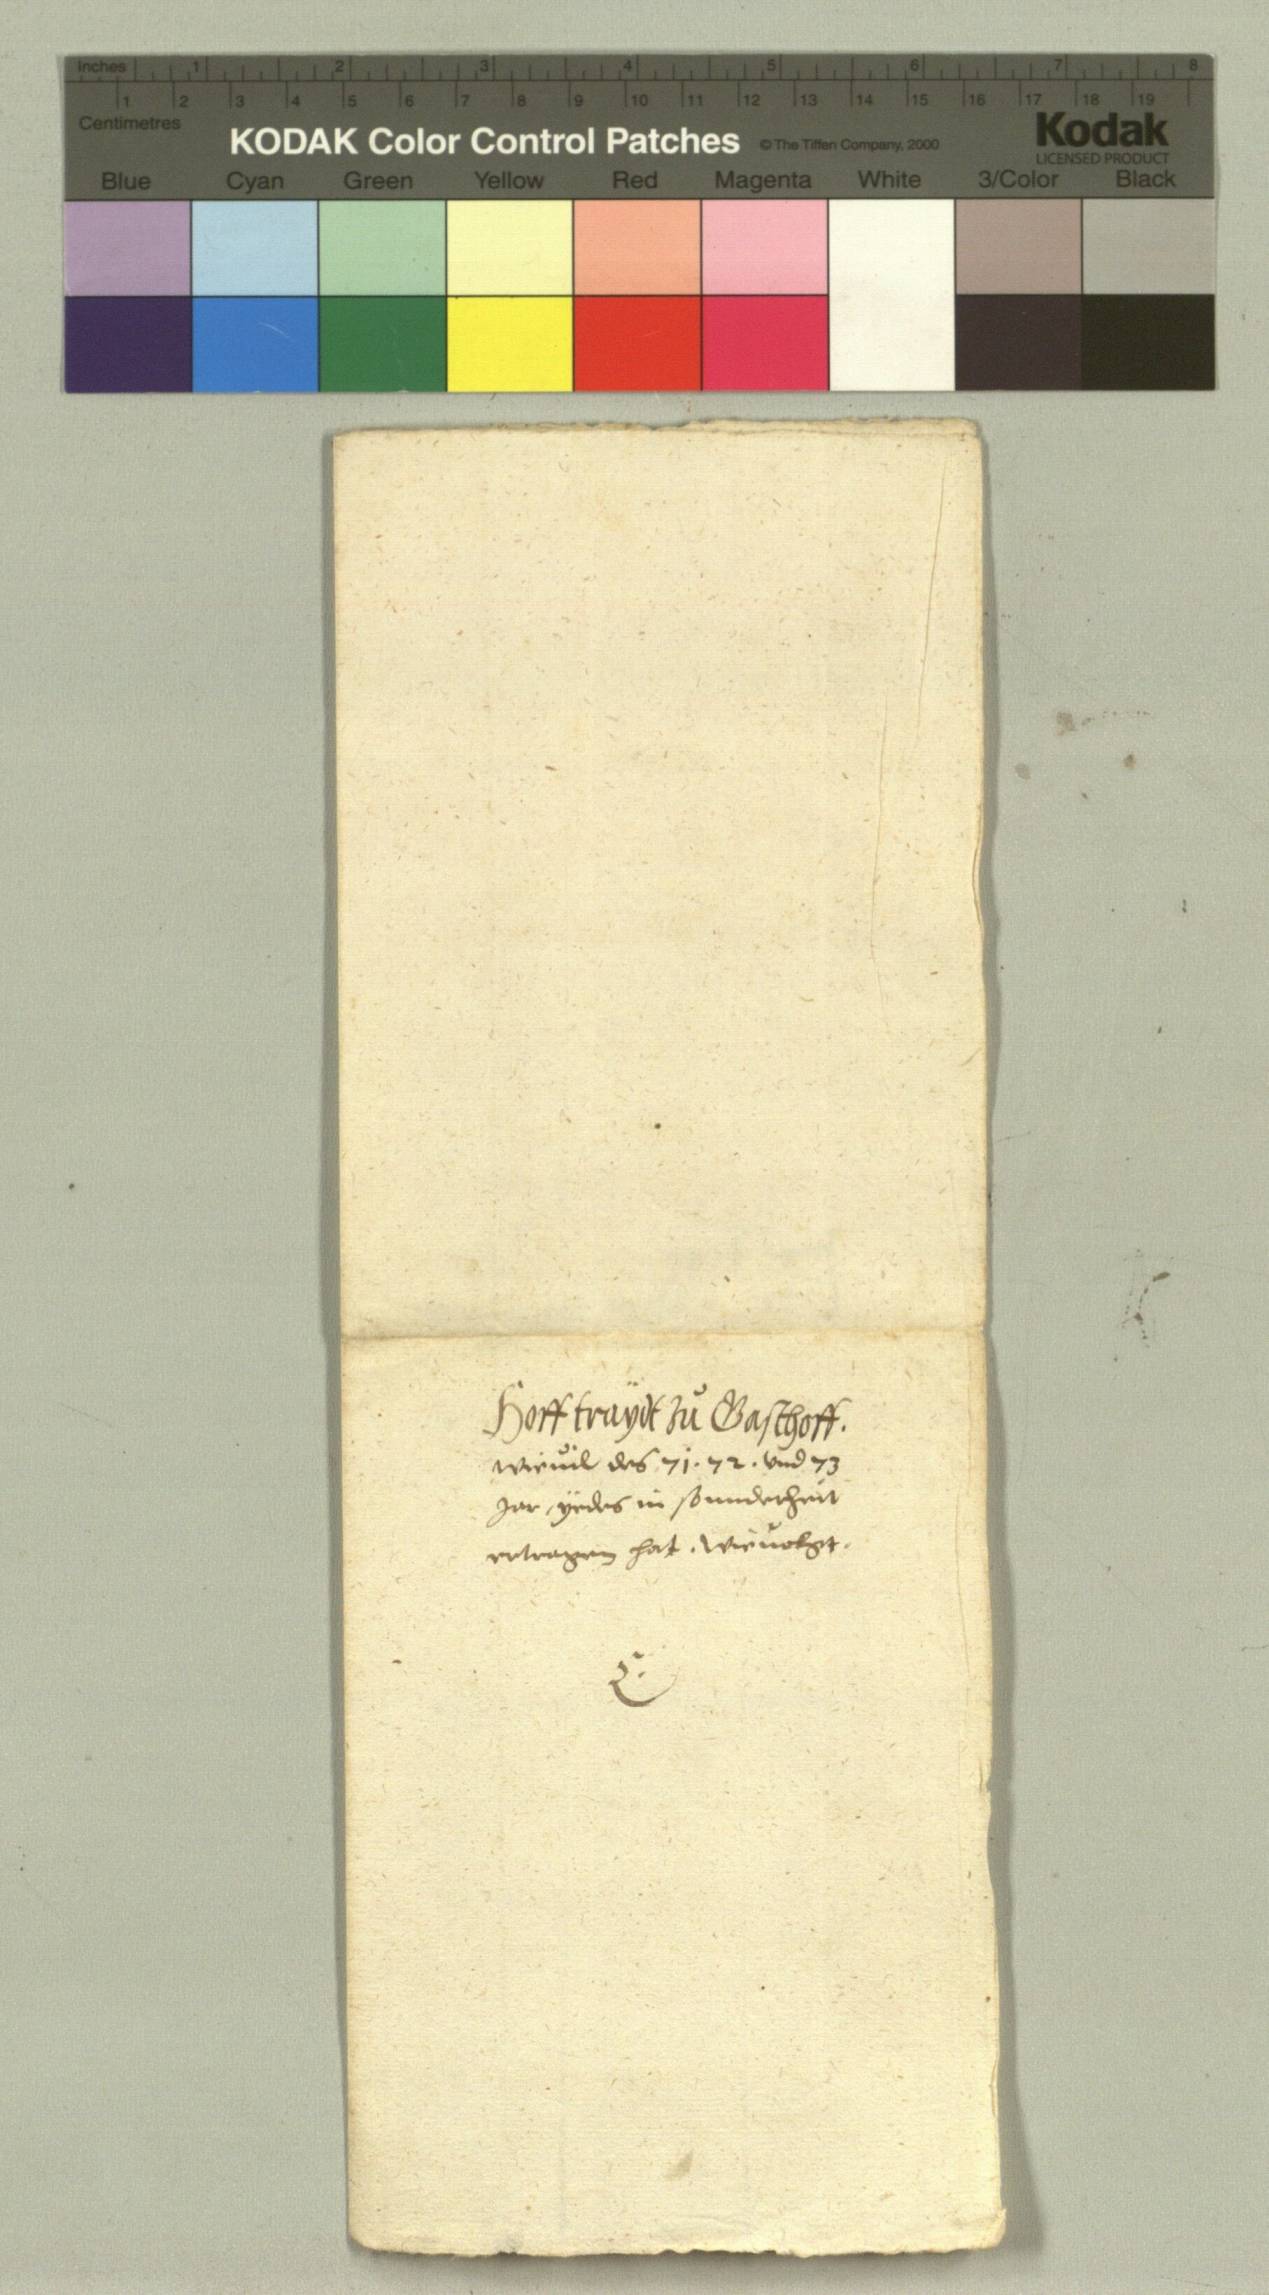 Inches 1 2 3 4 5 6 7 8
1 2 3 4 5 6 7 8 9 10 11 12 13 14 15 16 17 18 19
Centimetres
KODAK Color Control Patches © The Tiffen Company, 2000 Kodak
LICENSED PRODUCT
Blue Cyan Green Yellow Red Magenta White 3/Color Black
Hoff traÿdt zů Gasthoff.
Wieuil des 71. 72. vnd 73
Jar ÿedes in sonnderheit
ertragen hat. Wieuolgt.